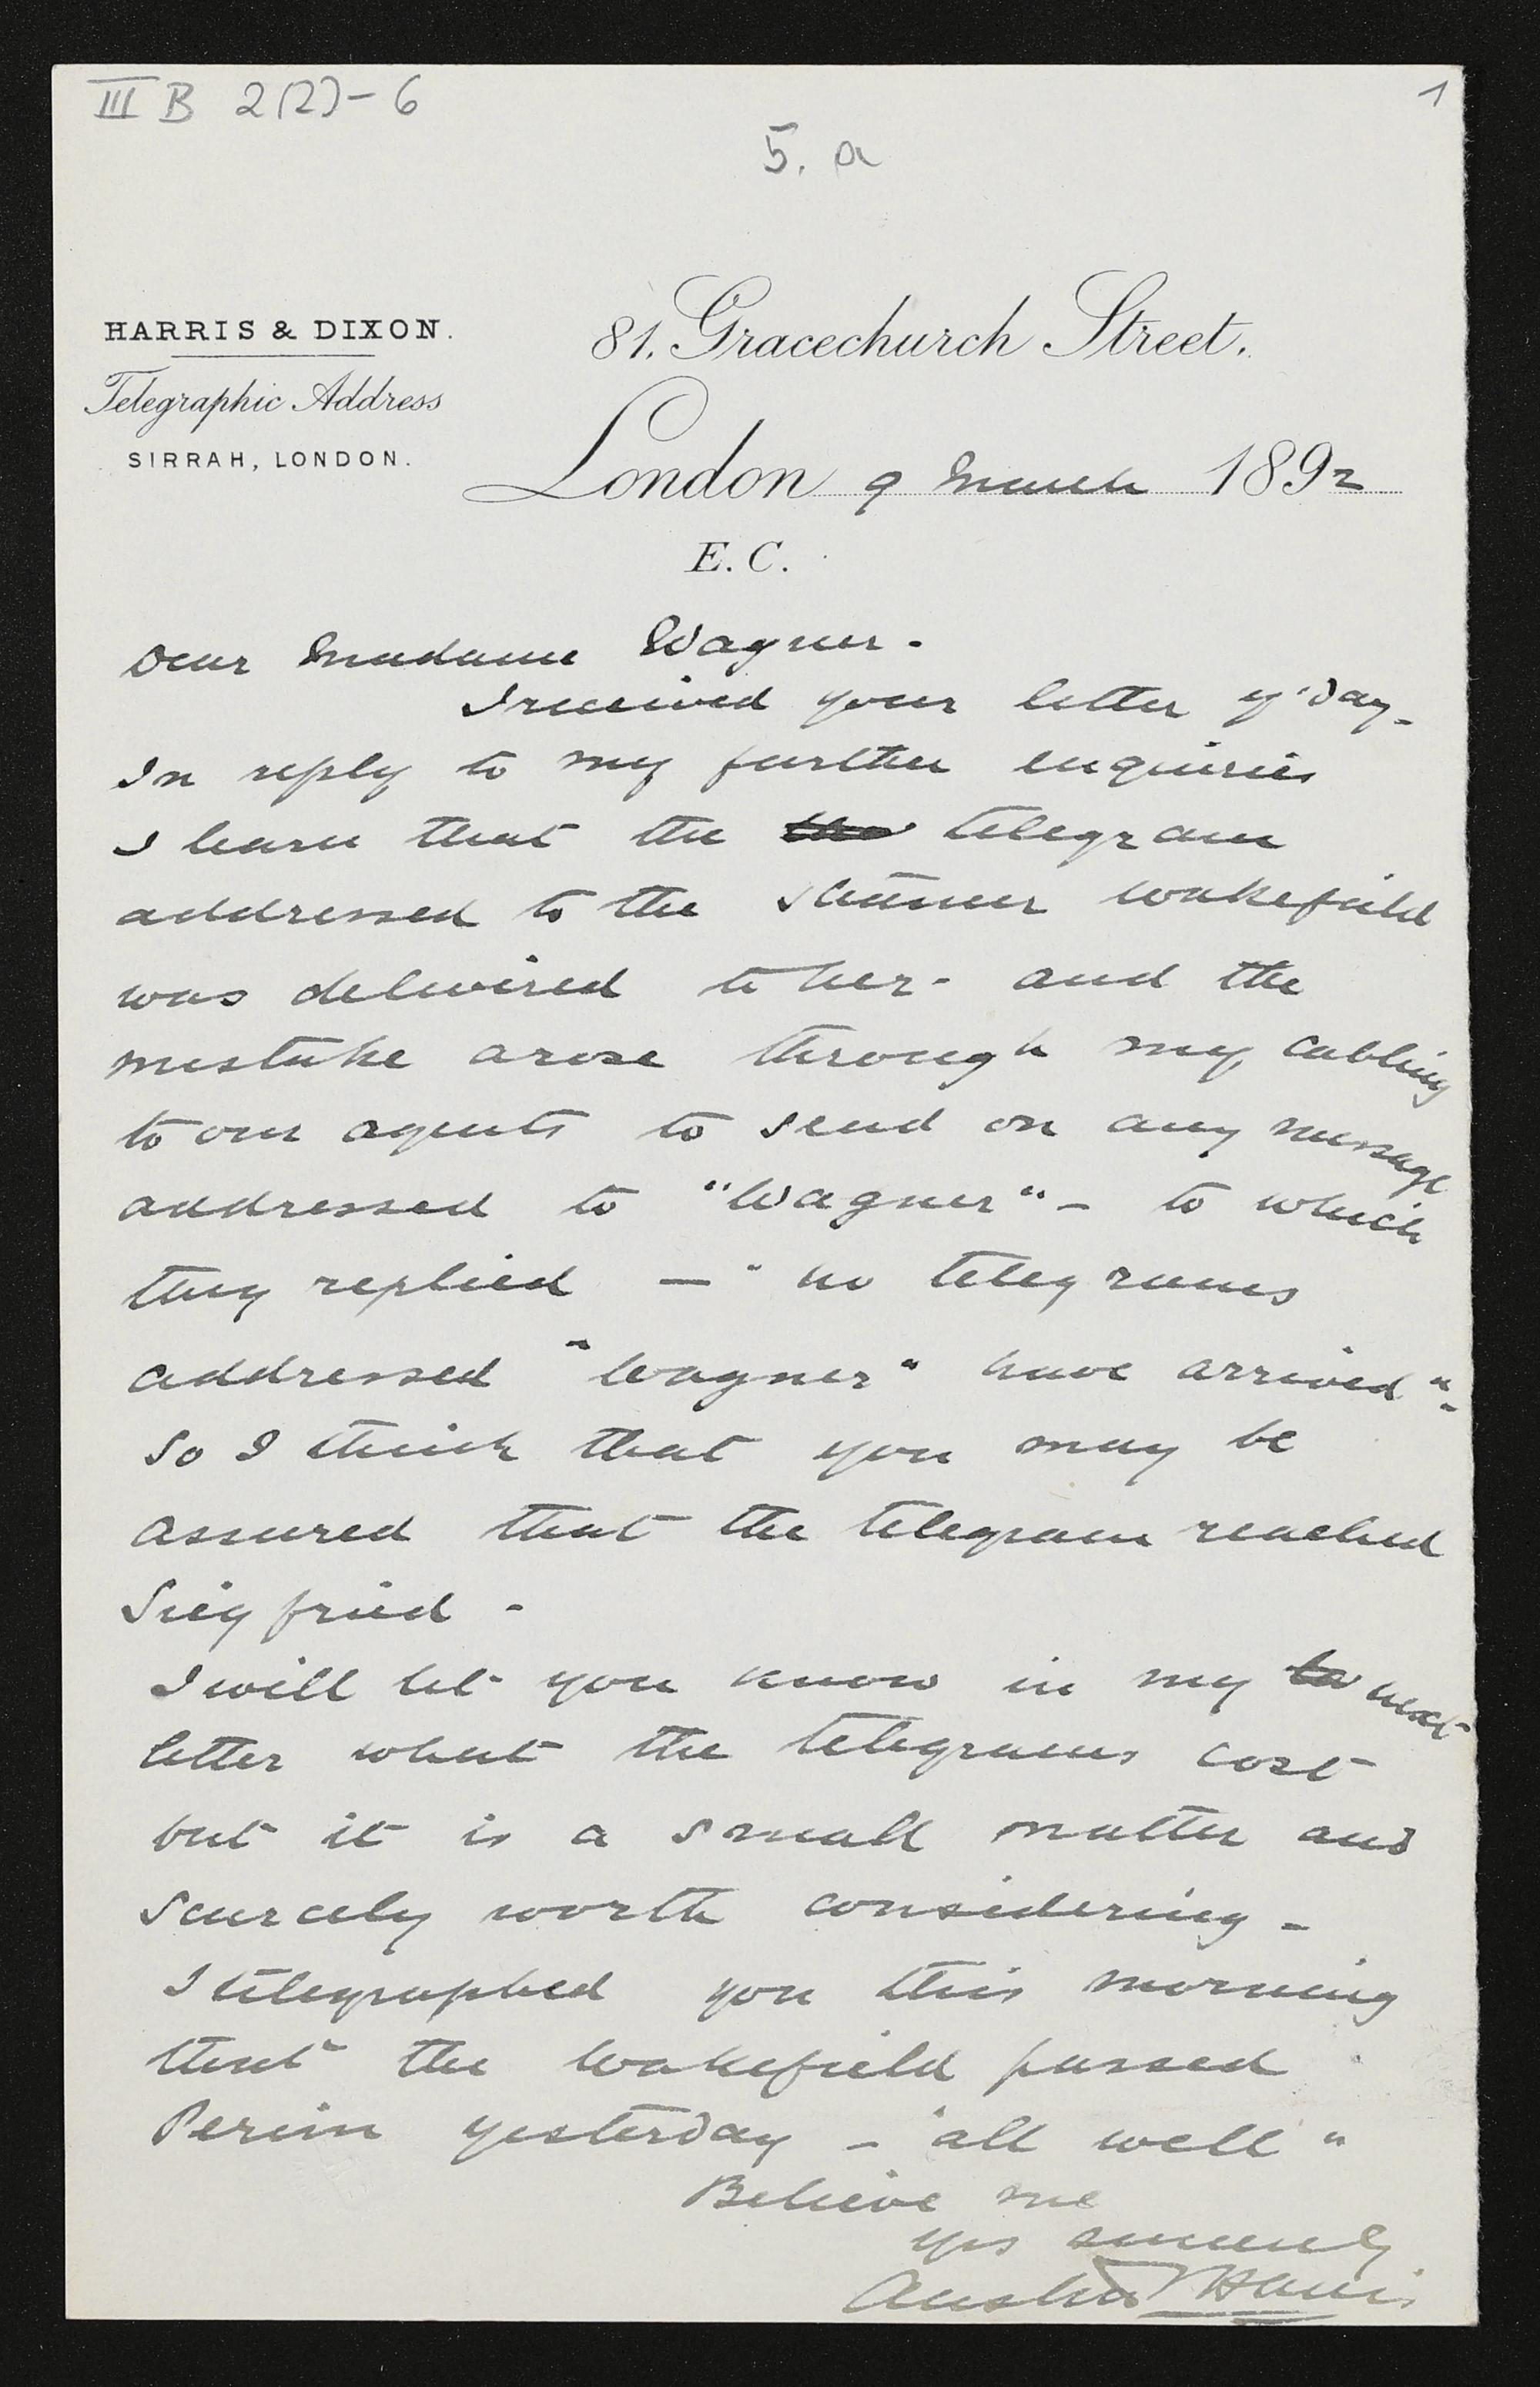 III B 2(2)-6
1
5. a
HARRIS & DIXON.
Telegraphic Address
SIRRAH, LONDON.
81. Gracechurch Street.
London 9 March 1892
E.C.
Dear Madame Wagner -
I received your letter y'day -
In reply to my further enquiries
I learn that the the telegram
addressed to the steamer Wakefield
was delivered to her - and the
mistake arose through my cabling
to our agents to send on any message
addressed to "Wagner" - to which
they replied — "no telegrams
addressed "Wagner" have arrived" -
So I think that you may be
assured that the telegram reached
Siegfried -
I will let you know in my la next
letter what the telegrams cost
but it is a small matter and
scarcely worth considering -
I telegraphed you this morning
that the Wakefield passed
Perim yesterday - "all well"
Believe me
yrs sincerely
Harris